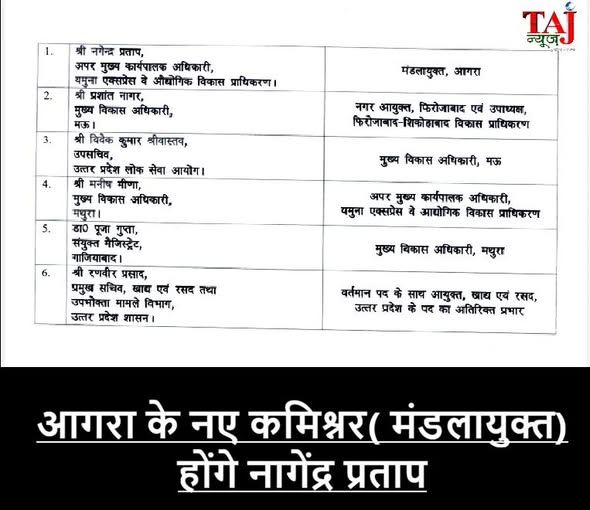 TAJ
न्यूज़
1. श्री नगेन्द्र प्रताप,
अपर मुख्य कार्यपालक अधिकारी,
यमुना एक्सप्रेस वे औद्योगिक विकास प्राधिकरण।
मंडलायुक्त, आगरा
2. श्री प्रशांत नागर,
मुख्य विकास अधिकारी,
मऊ।
नगर आयुक्त, फिरोजाबाद एवं उपाध्यक्ष,
फिरोजाबाद-शिकोहाबाद विकास प्राधिकरण
3. श्री विवेक कुमार श्रीवास्तव,
उपसचिव,
उत्तर प्रदेश लोक सेवा आयोग।
मुख्य विकास अधिकारी, मऊ
4. श्री मनीष मीणा,
मुख्य विकास अधिकारी,
मथुरा।
अपर मुख्य कार्यपालक अधिकारी,
यमुना एक्सप्रेस वे आद्योगिक विकास प्राधिकरण
5. डा0 पूजा गुप्ता,
संयुक्त मैजिस्ट्रेट,
गाजियाबाद।
मुख्य विकास अधिकारी, मथुरा
6. श्री रणवीर प्रसाद,
प्रमुख सचिव, खाद्य एवं रसद तथा
उपभोक्ता मामले विभाग,
उत्तर प्रदेश शासन।
वर्तमान पद के साथ आयुक्त, खाद्य एवं रसद,
उत्तर प्रदेश के पद का अतिरिक्त प्रभार
आगरा के नए कमिश्नर( मंडलायुक्त)
होंगे नागेंद्र प्रताप